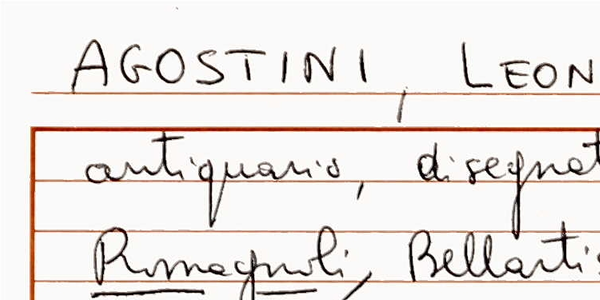 AGOSTINI, LEON
antiquario, disegnat
Romagnoli, Bellarti